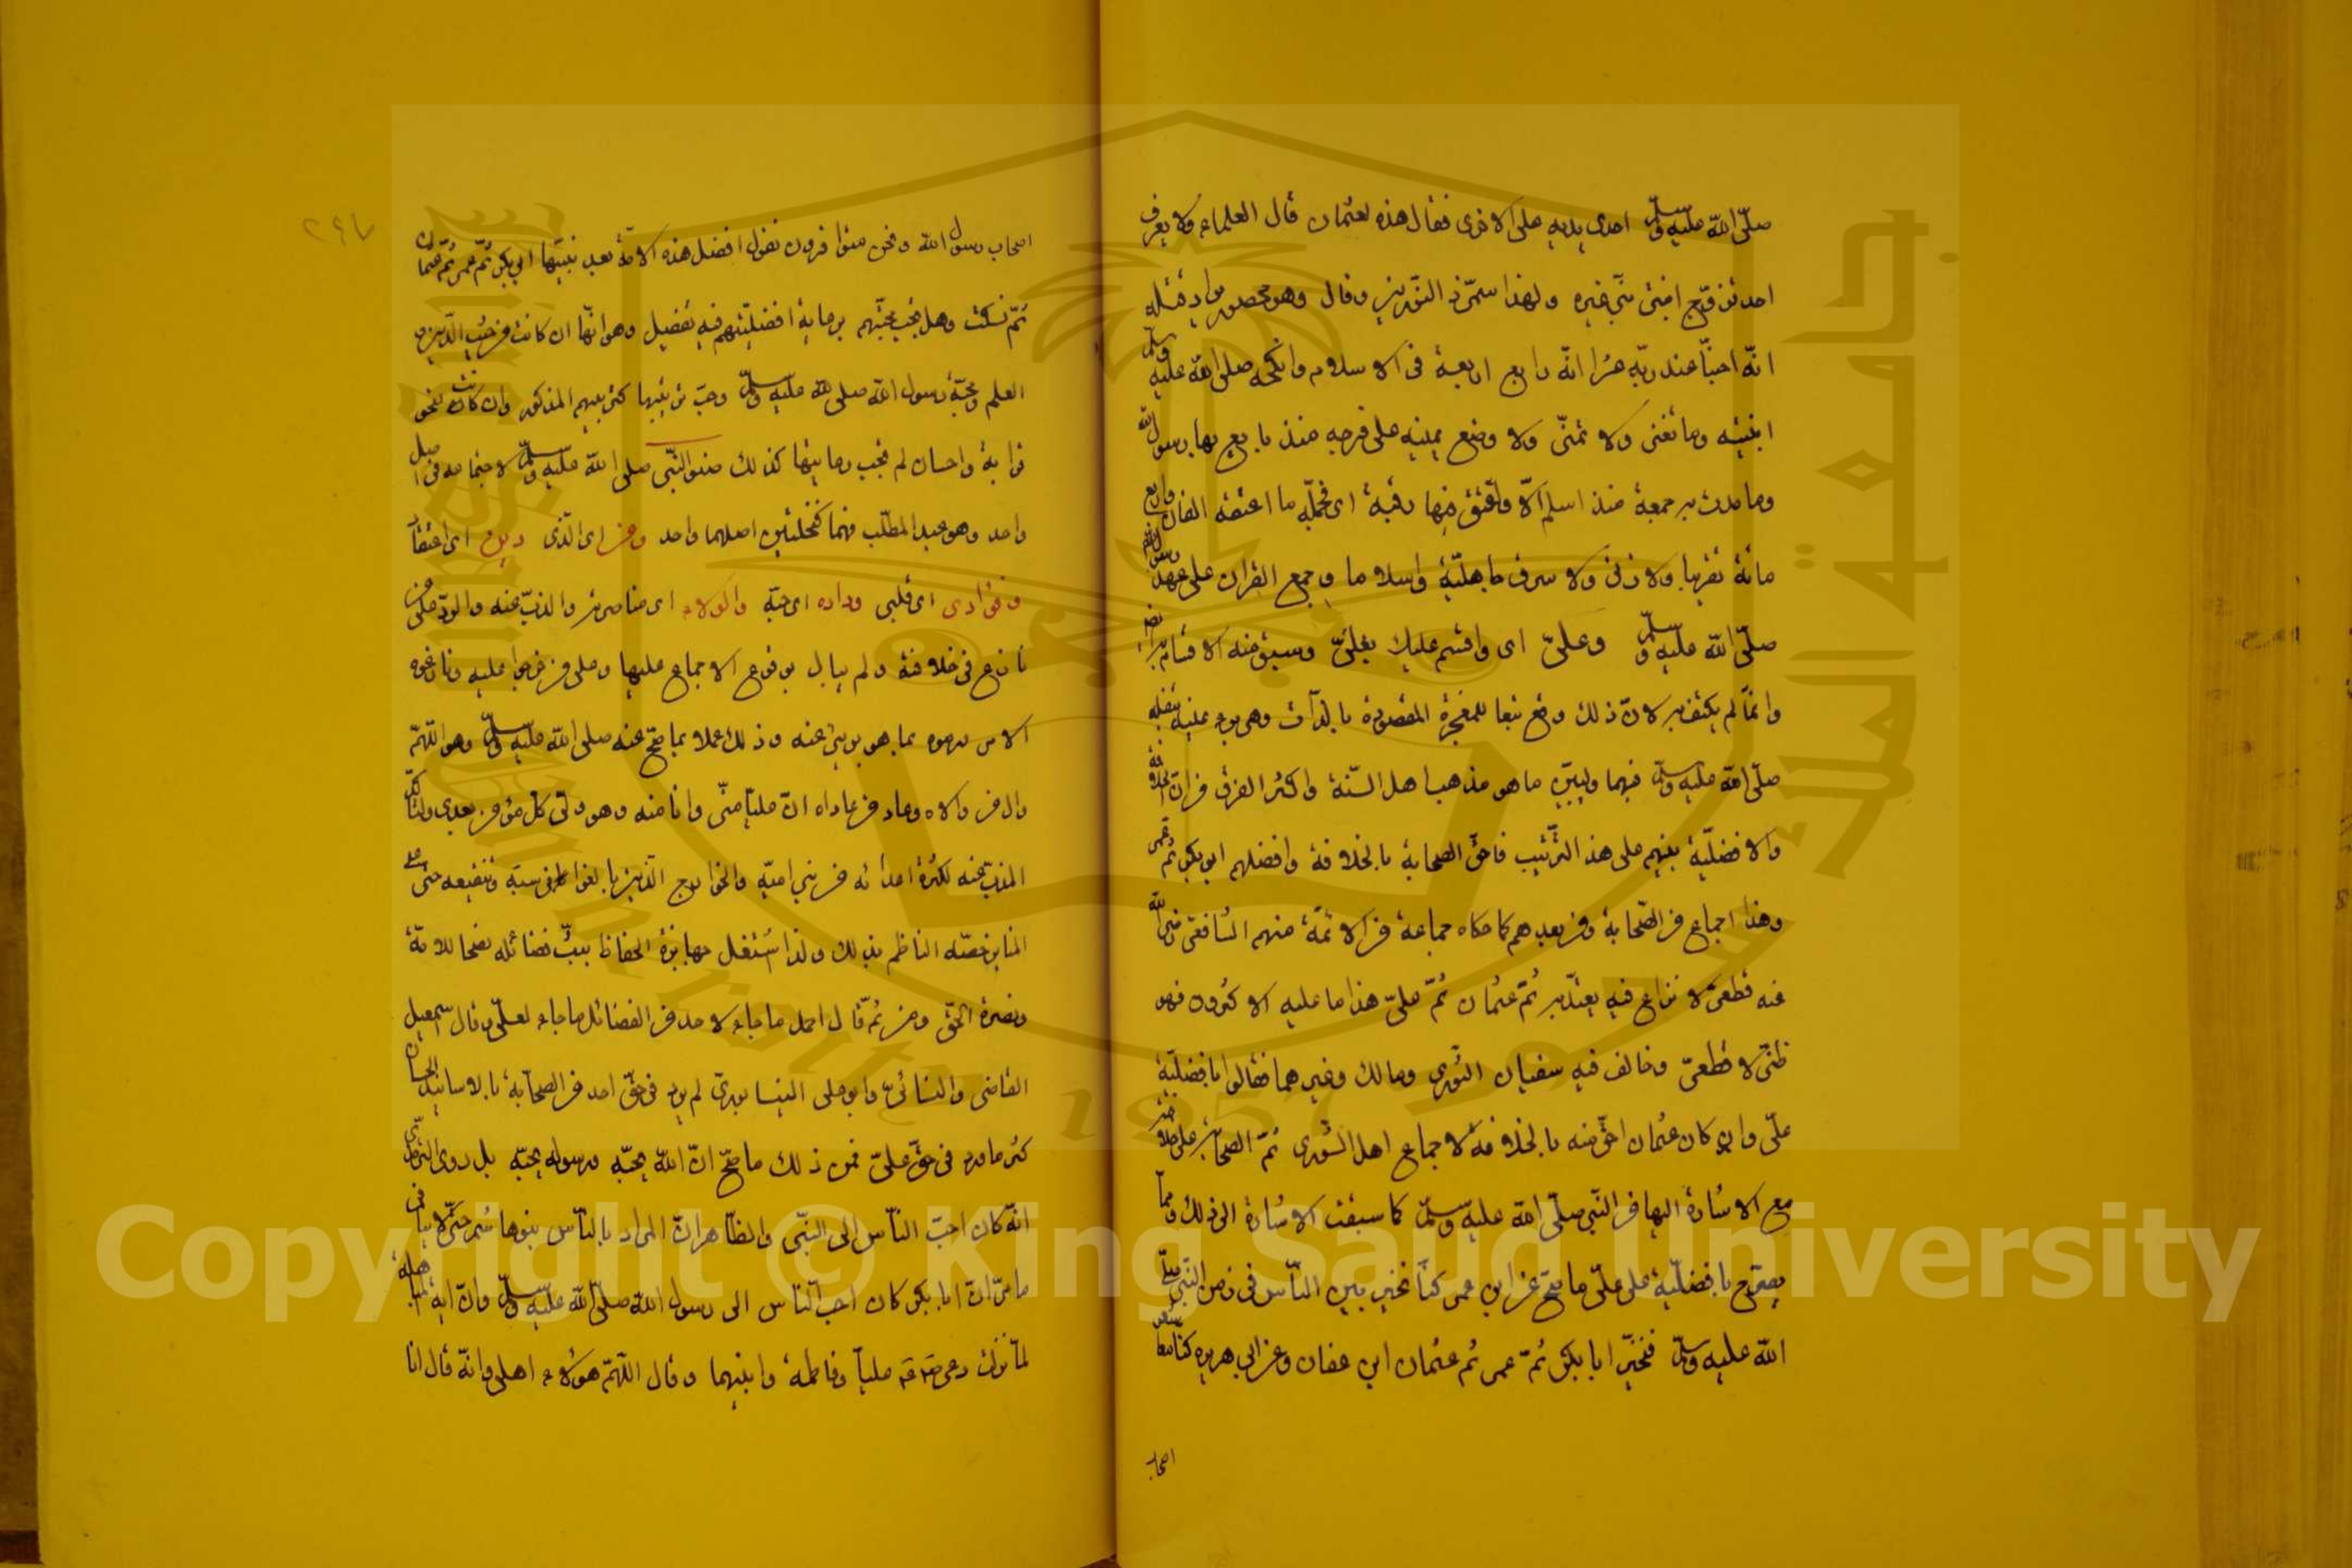 صلّى الله عليه وسلّم احدى يديه على الاخرى فقال هذه لعثمان قال العلماء ولا يعرف
احد تزوّج ابنتى نبيّ غيره ولهذا سمّى ذا النورين وقال وهو محصور
انّه اختبأ عند ربّه عشرا انّه رابع اربعة فى الاسلام وانكحه صلى الله عليه وسلم
ابنتيه وما تغنى ولا تمنّى ولا وضع يمينه على فرجه منذ بايع بها رسول الله
وما مرت به جمعة منذ اسلم الّا واعتق فيها رقبة اى فجملة ما اعتقه الفان واربع
مائة تقريبا ولا زنى ولا سرق جاهليّة واسلاما وجمع القران على عهد رسول الله
صلّى الله عليه وسلّم وعلىّ اى واقسم عليك بعلىّ وسبق منه الاقسام به
وانّما لم يكتف به لانّ ذلك وقع تبعا للمعجزة المقصودة بالذّات وهى برء عينيه بتفله
صلّى الله عليه وسلّم فيهما وليبيّن ما هو مذهب اهل السّنة واكثر الفرق من انّ الخلافة
والافضليّة بينهم على هذا التّرتيب فاحقّ الصحابة بالخلافة وافضلهم ابو بكر ثمّ عمر
وهذا اجماع من الصّحابة ومن بعدهم كما حكاه جماعة من الائمّة منهم الشافعى رضى الله
عنه قطعىّ لا نزاع فيه يعتدّ به ثمّ عثمان ثمّ علىّ هذا ما عليه الاكثرون فهو
ظنّى لا قطعىّ وخالف فيه سفيان الثورى ومالك وغيرهما فقالوا بافضليّة
علىّ وان كان عثمان احقّ منه بالخلافة لاجماع اهل الشورى ثمّ الصحابة على خلافته
مع الاشارة اليها من النّبى صلّى الله عليه وسلّم كما سبقت الاشارة الى ذلك وممّا
يصرّح بافضليّة على علىّ ما صحّ عن ابن عمر كنّا نخير بين النّاس فى زمن النّبى صلّى
الله عليه وسلّم فنخيّر ابا بكر ثمّ عمر ثم عثمان ابن عفان وعن ابى هريره كنّا معاشر
اصحاب
٢٩٧
اصحاب رسول الله ونحن متوافرون نقول افضل هذه الامّة بعد نبيّها ابى بكر ثمّ عمر ثمّ عثمان
ثمّ نسكت وهل يجب محبّتهم برعاية افضليّتهم فيه تفصيل وهو انّها ان كانت من حيث الدّين و
العلم ومحبّة رسول الله صلى الله عليه وسلّم وجب ترتيبها كترتيبهم المذكور وان كانت بنحو
قرابة واحسان لم يجب رعايتها كذلك صنو النّبى صلى الله عليه وسلّم لاجتماعه فى اصل
واحد وهو عبد المطلّب فهما كنخلتين اصلهما واحد ومن اى الّذى دين اى اعتقاد
وفؤادى اى قلبى وداده اى حبّه والولاء اى مناصرته والذّبّ عنه والردّ على من
نازع فى خلافته ولم يبال بوقوع الاجماع عليها وعلى من خرجوا عليه ونازعوه
الامر ورموه بما هو برىء عنه وذلك عملا بما صحّ عنه صلى الله عليه وسلّم وهو اللّهمّ
وال من والاه وعاد من عاداه انّ عليّا منّى وانا منه وهو ولىّ كلّ مؤمن بعدى ولتأكّد
الذبّ عنه لكثرة اعدائه من بنى اميّة والخوارج الّذين بالغوا فى سبّه وتنقيصه حتى على
المنابر خصّه الناظم بذلك ولذا اشتغل جهابذة الحفاظ ببثّ فضائله نصحا للامّة
ونصرة للحقّ ومن ثمّ قال احمد ما جاء لاحد من الفضائل ما جاء لعلىّ وقال اسمعيل
القاضى والنسائىّ وابو على النيسابورىّ لم يرد فى حقّ احد من الصحابة بالاسانيد الحسان
اكثر ما ورد فى حقّ علىّ فمن ذلك ما صحّ انّ الله يحبّه ورسوله يحبّه بل روى الترمذى
انّه كان احبّ النّاس الى النبّى والظّاهر انّ المراد بالنّاس بنو هاشم حتّى لا ينافى
ما مرّ انّ ابا بكر كان احبّ النّاس الى رسول الله صلّى الله عليه وسلّم وانّ اية المباهلة
لمّا نزلت دعى عليّا وفاطمة وابنيهما وقال اللّهمّ هؤلاء اهلى وانّه قال انا
Copyright © King Saud University
جامعة الملك سعود
King Saud University
1957